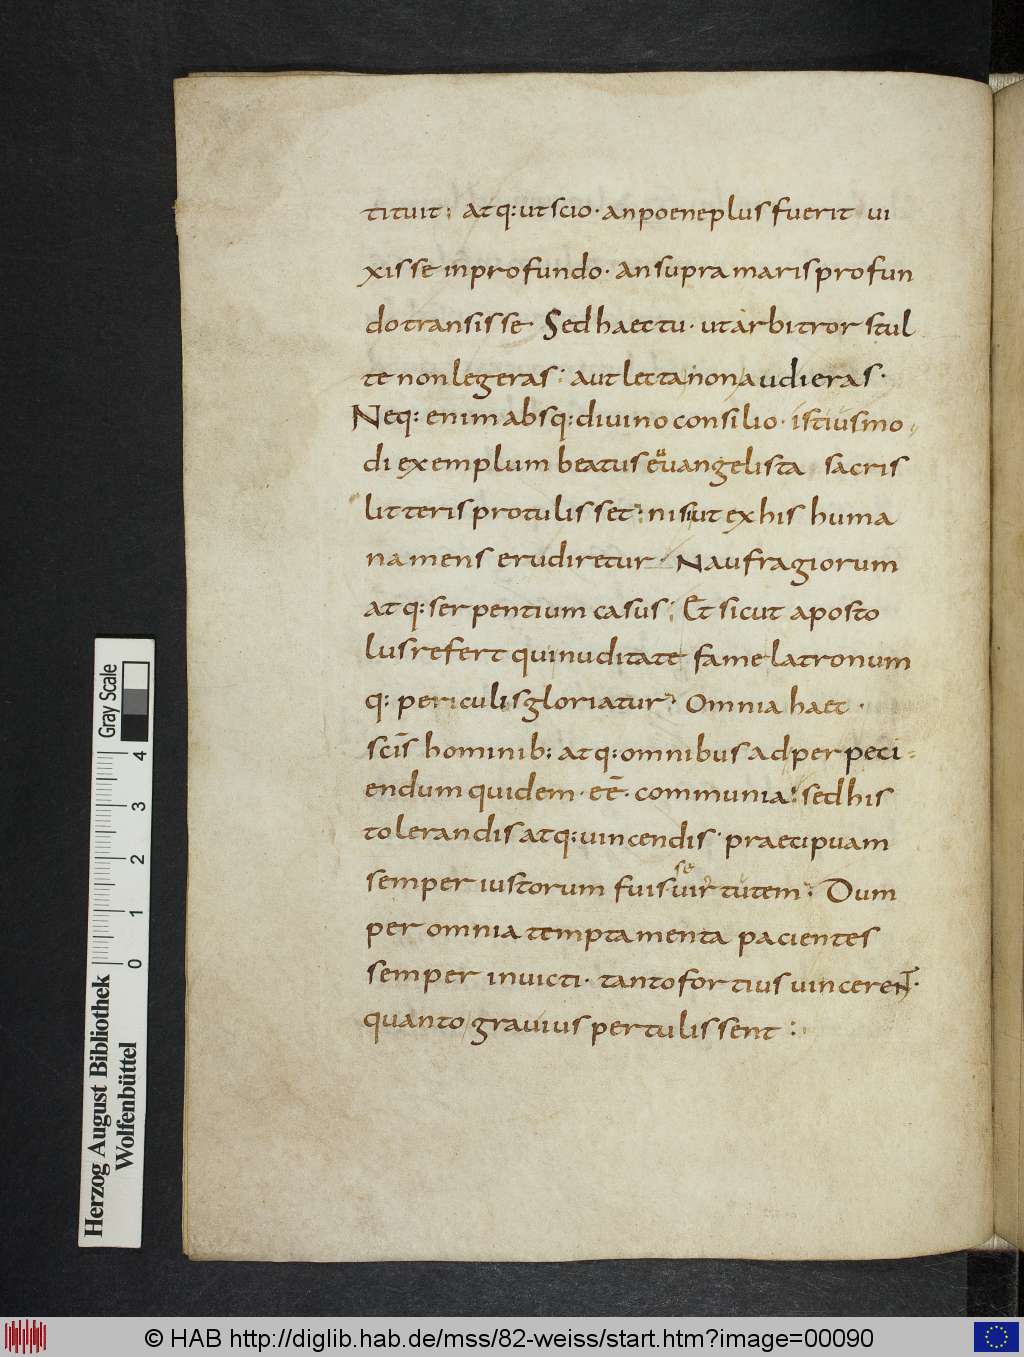 tituit; atq: ut scio· an poene plus fuerit ui
xisse in profundo· an supra maris profun
do transisse Sed haec tu· ut arbitror stul
te non legeras; aut lecta non audieras·
Neq: enim absq: diuino consilio· istiusmo-
di exemplum beatus euangelista sacris
litteris protulisset; nisi ut ex his huma
na mens erudiretur· Naufragiorum
atq: serpentium casus; Et sicut aposto
lus refert qui nuditate fame latronum
q: periculis gloriatur· Omnia haec·
scīs hominib: atq: omnibus ad perpeci-
endum quidem· eē· communia; sed his
tolerandis atq: uincendis· praecipuam
semper iustorum fuisse uirtutem; Dum
per omnia temptamenta pacientes
semper inuicti· tanto fortius uincerent·
quanto grauius pertulissent:
Herzog August Bibliothek
Wolfenbüttel
Gray Scale
0 1 2 3 4
© HAB http://diglib.hab.de/mss/82-weiss/start.htm?image=00090